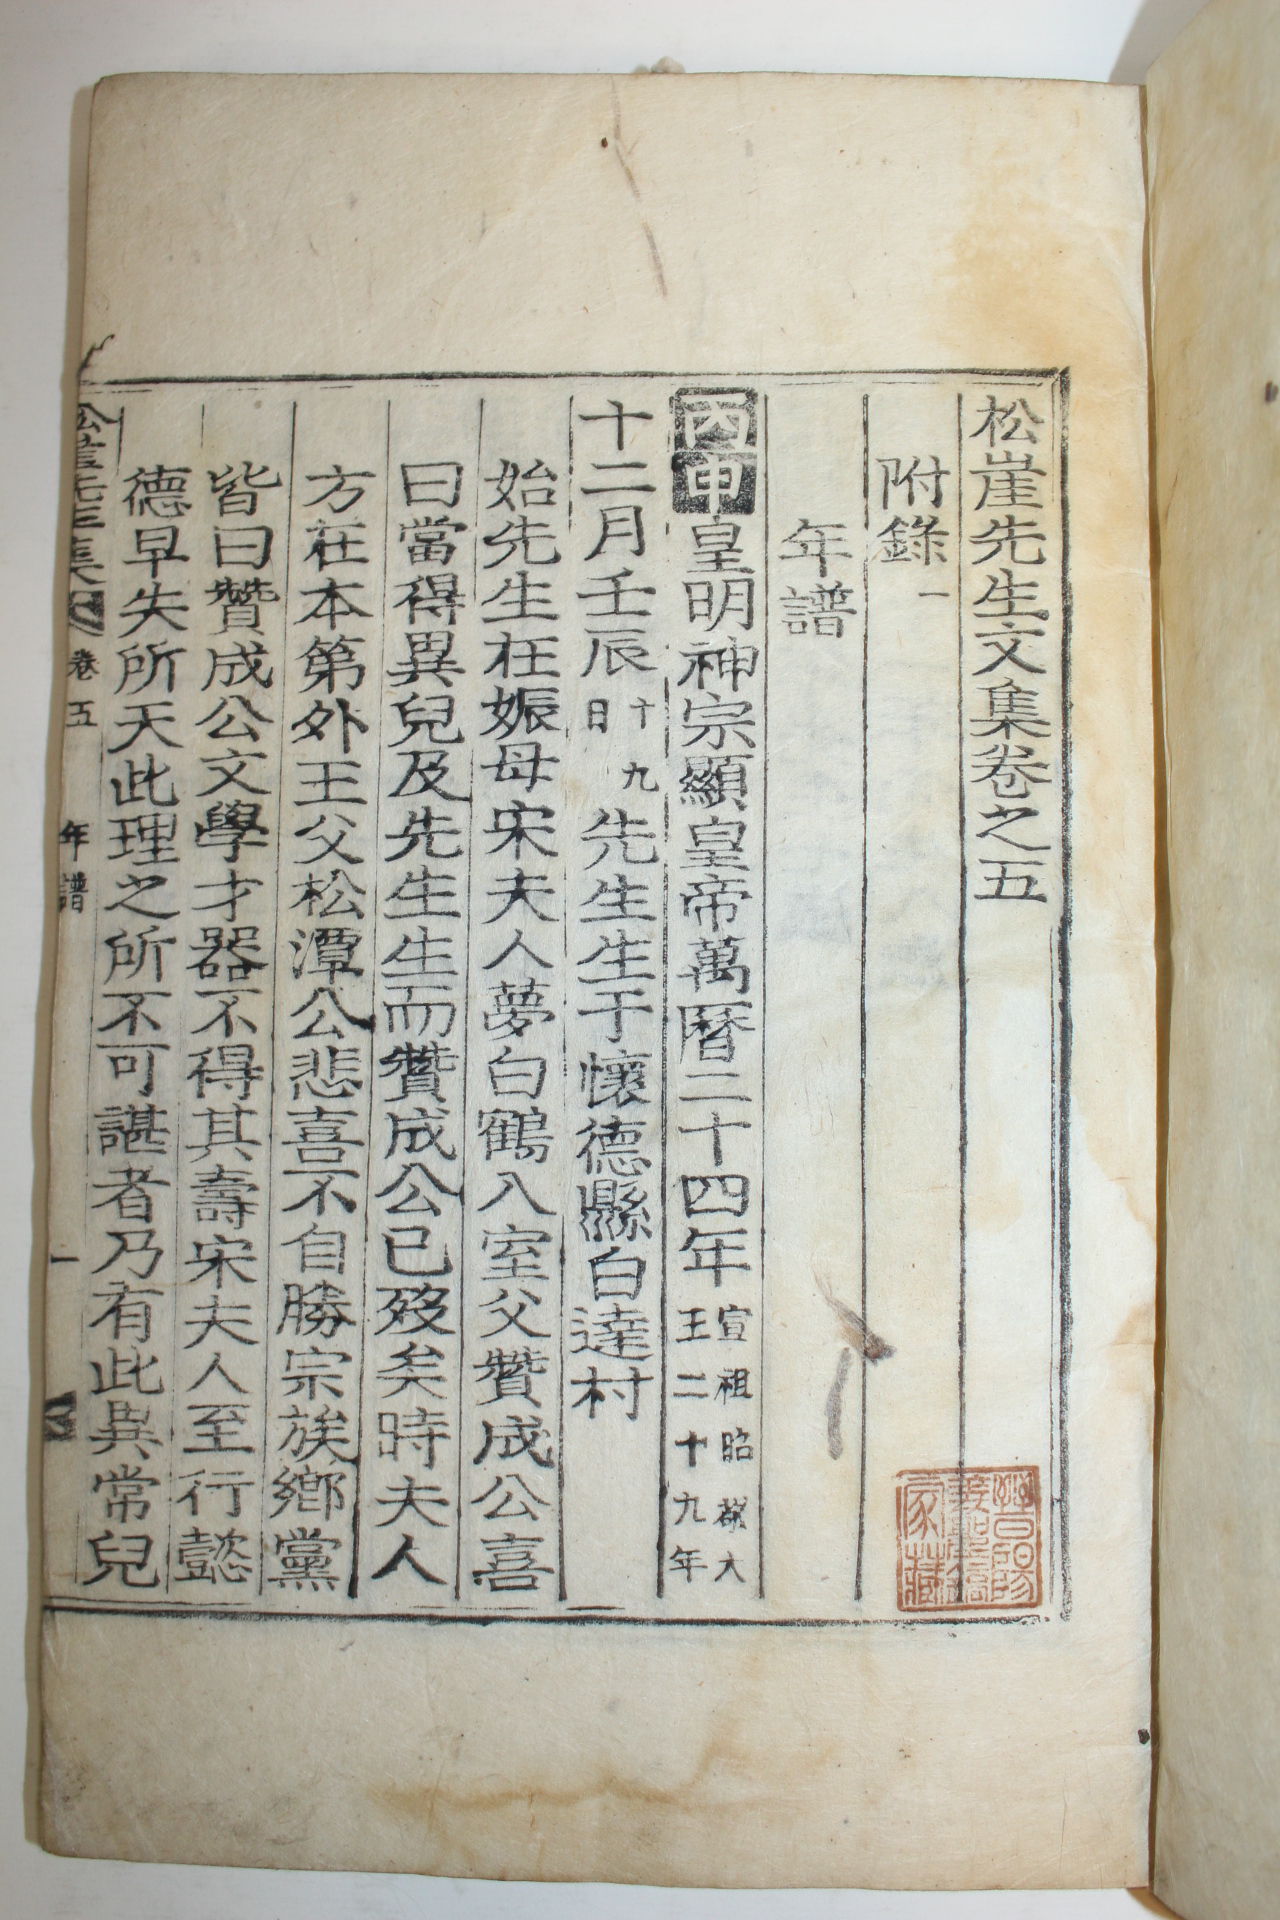 松崖先生文集卷之五
附錄一
年譜
丙申皇明神宗顯皇帝萬曆二十四年宣祖昭敬大王二十九年
十二月壬辰十九日先生生于懷德縣白達村
始先生在娠母宋夫人夢白鶴入室父贊成公喜
曰當得異兒及先生生而贊成公已歿矣時夫人
方在本第外王父松潭公悲喜不自勝宗族鄉黨
皆曰贊成公文學才器不得其壽宋夫人至行懿
德早失所天此理之所不可諶者乃有此異常兒
松崖先生集 卷五 年譜 一
家藏